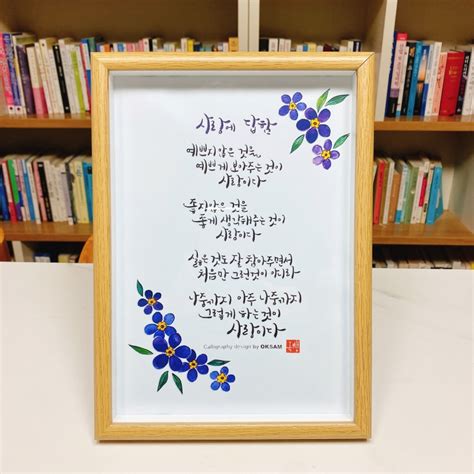 사랑에 답함
예쁘지않은 것을
예쁘게 보아주는 것이
사랑이다
좋지않은 것을
좋게 생각해주는 것이
사랑이다
싫은 것도 잘 참아주면서
처음만 그런것이 아니라
나중까지 아주 나중까지
그렇게 하는 것이
사랑이다
Calligraphy design by OKSAM